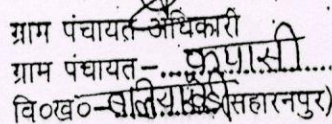 ग्राम पंचायत अधिकारी
ग्राम पंचायत-...कपासी....
वि०ख०-बलियाखेड़ी(सहारनपुर)